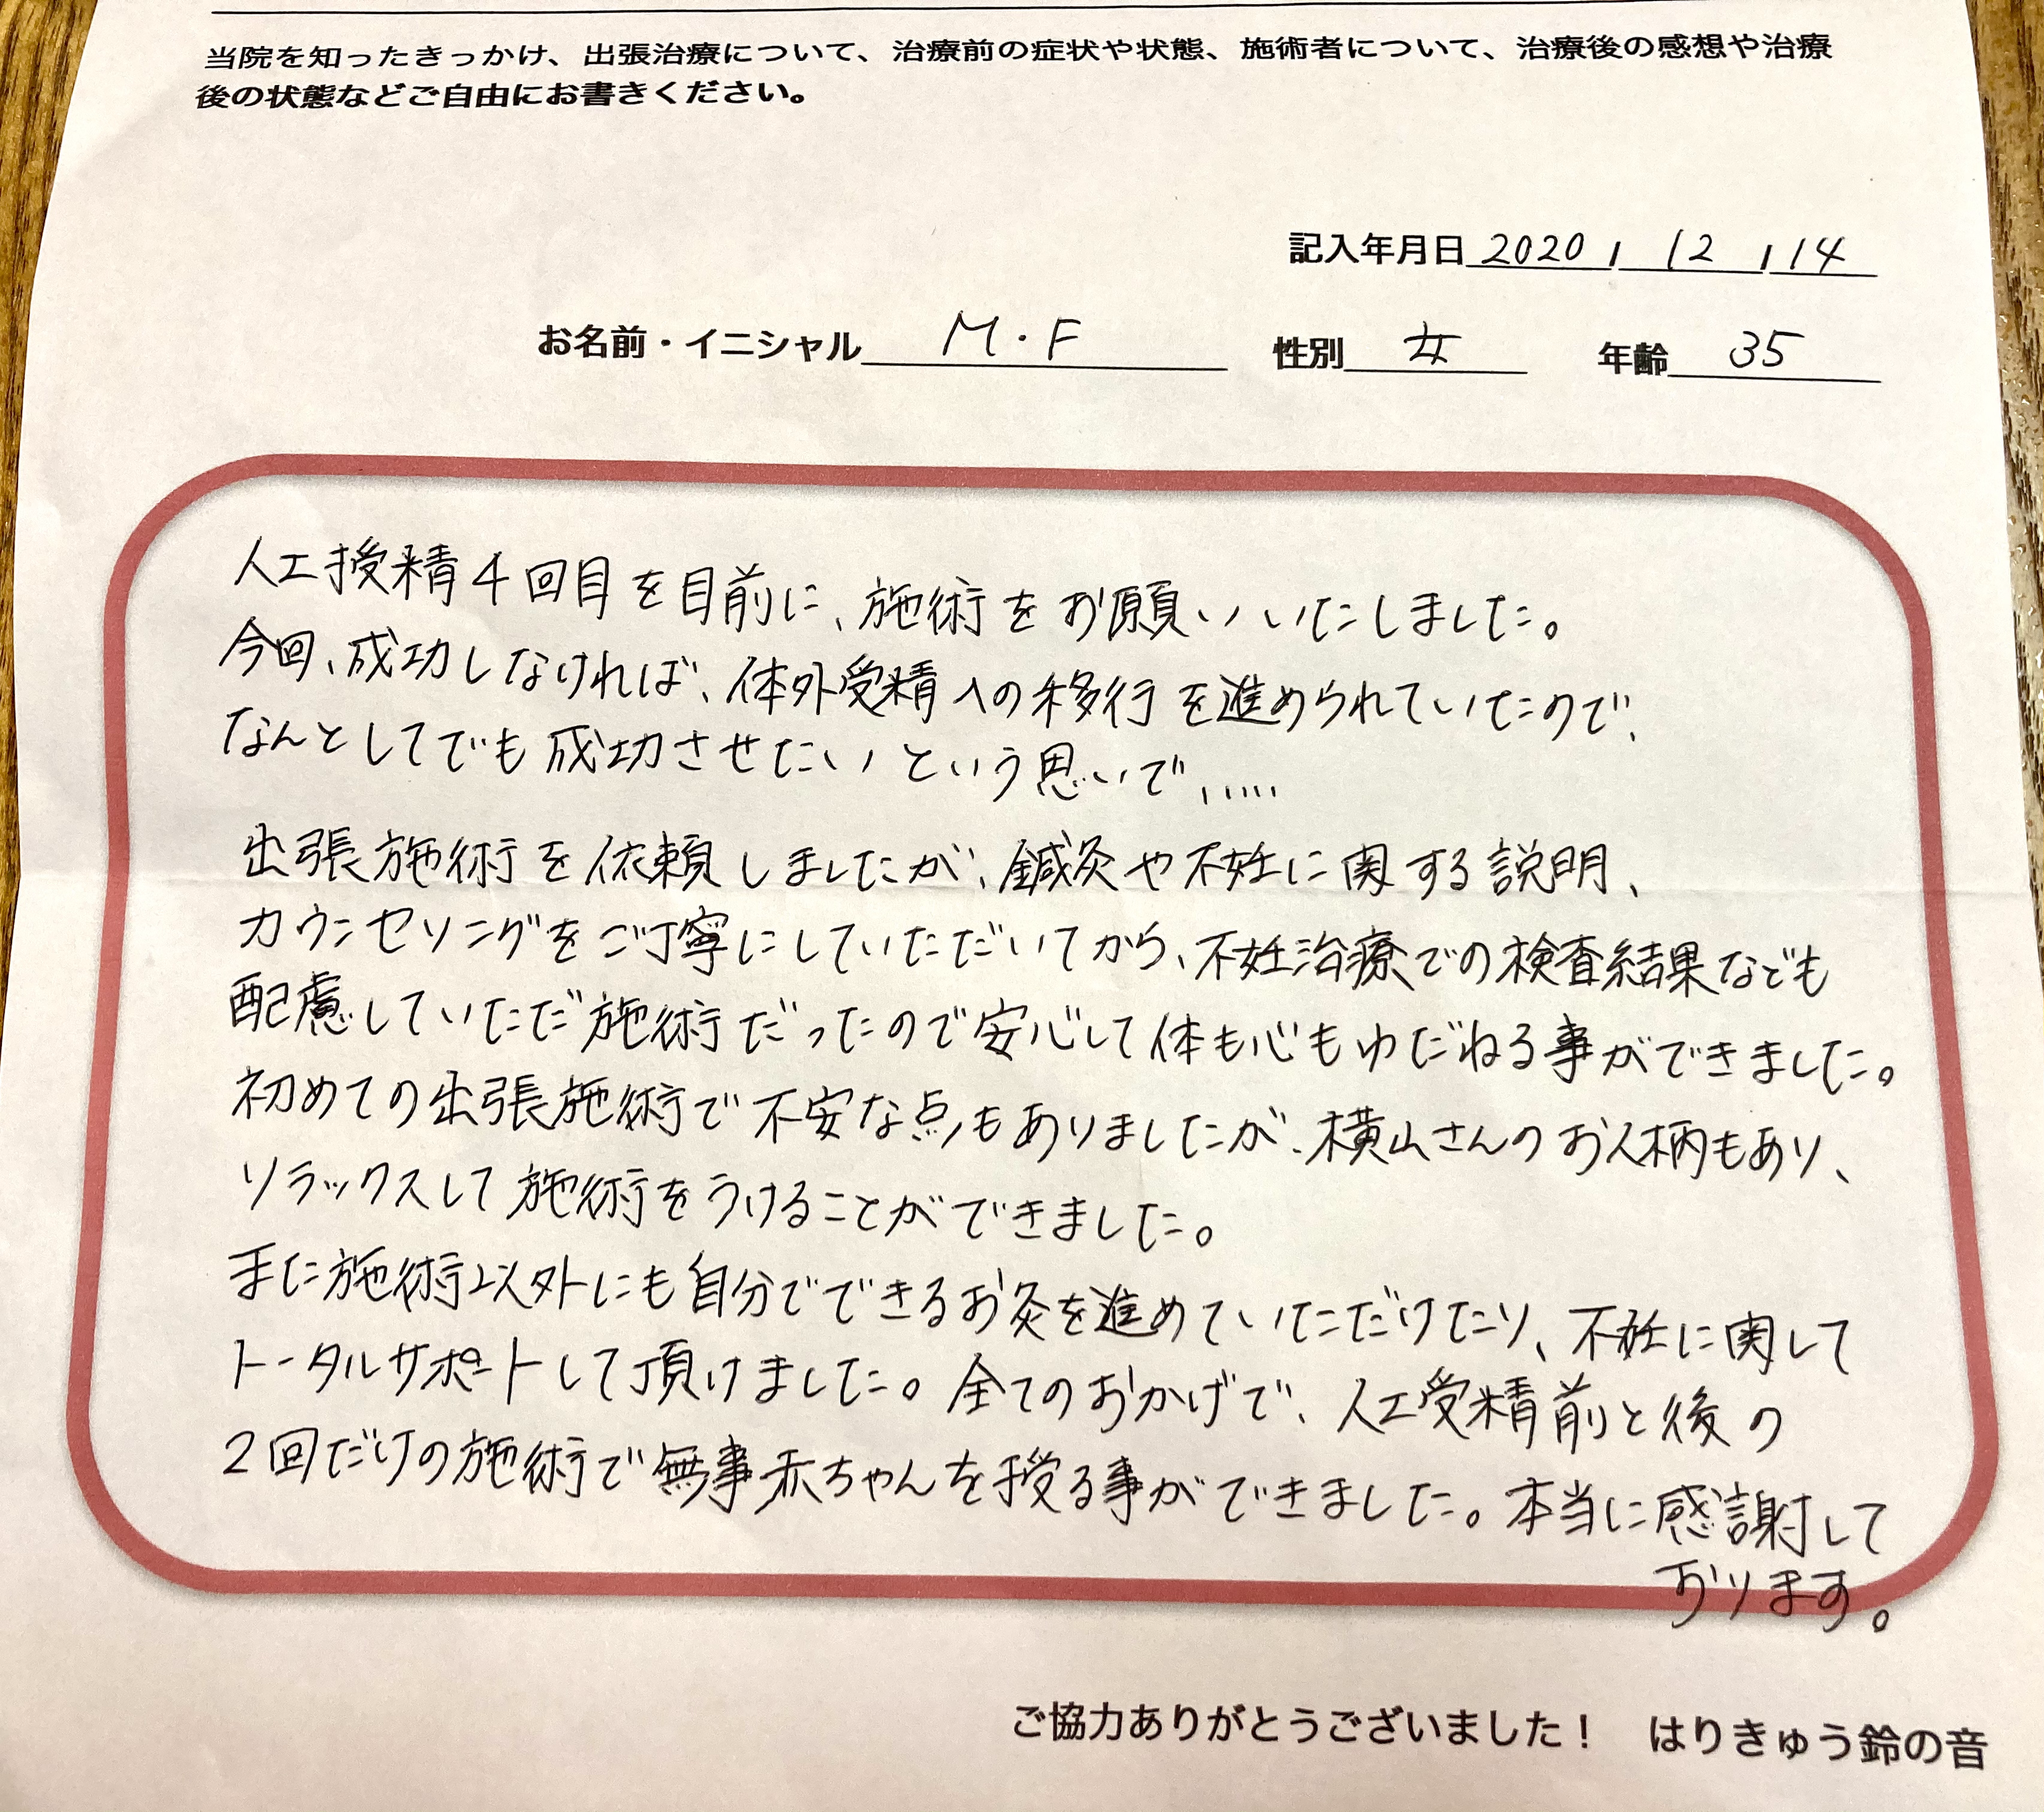 当院を知ったきっかけ、出張治療について、治療前の症状や状態、施術者について、治療後の感想や治療
後の状態などご自由にお書きください。
記入年月日 2020 / 12 / 14
お名前・イニシャル M・F 性別 女 年齢 35
人工授精4回目を目前に、施術をお願いいたしました。
今回、成功しなければ、体外受精への移行を進められていたので、
なんとしてでも成功させたいという思いで、....
出張施術を依頼しましたが、鍼灸や不妊に関する説明、
カウンセリングをご丁寧にしていただいてから、不妊治療での検査結果なども
配慮していただ施術だったので安心して体も心もゆだねる事ができました。
初めての出張施術で不安な点もありましたが、横山さんのお人柄もあり、
リラックスして施術をうけることができました。
また施術以外にも自分でできるお灸を進めていただけたり、不妊に関して
トータルサポートして頂けました。全てのおかげで、人工受精前と後の
2回だけの施術で無事赤ちゃんを授る事ができました。本当に感謝して
おります。
ご協力ありがとうございました！ はりきゅう鈴の音